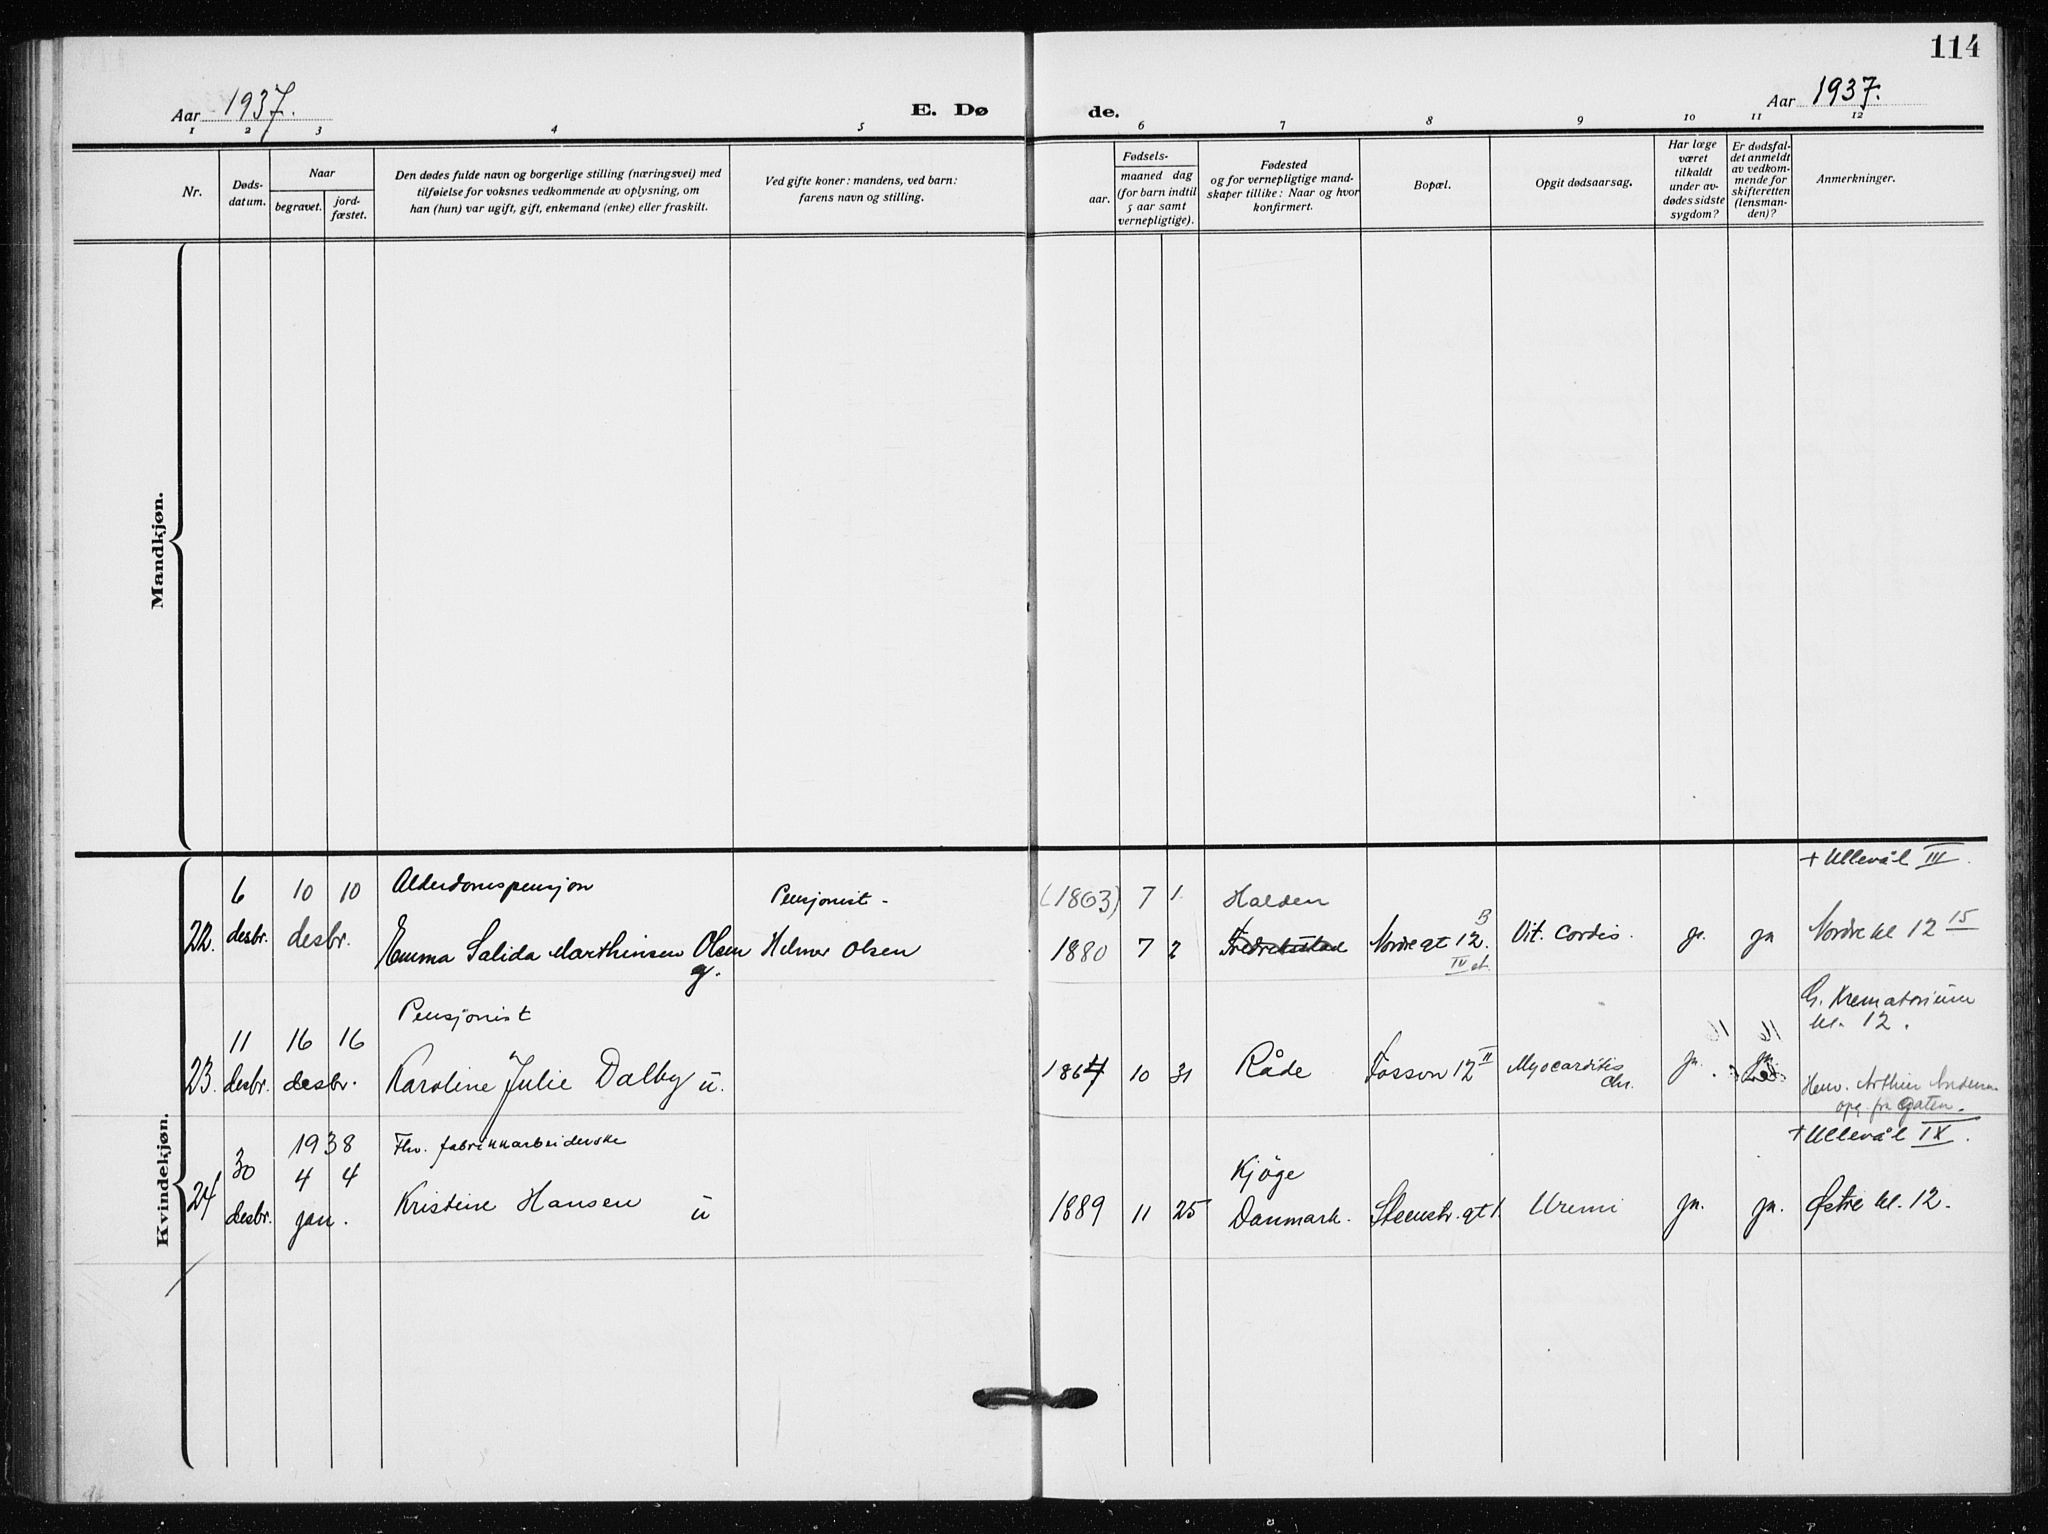 114
Aar 1937.
E. Dø de.
Aar 1937.
1 2 3 4 5 6 7 8 9 10 11 12
Nr.
Døds-
datum.
Naar
begravet.
jord-
fæstet.
Den dødes fulde navn og borgerlige stilling (næringsvei) med
tilføielse for voksnes vedkommende av oplysning, om
han (hun) var ugift, gift, enkemand (enke) eller fraskilt.
Ved gifte koner: mandens, ved barn:
farens navn og stilling.
Fødsels-
aar.
maaned dag
(for barn indtil
5 aar samt
vernepligtige).
Fødested
og for vernepligtige mand-
skaper tillike: Naar og hvor
konfirmert.
Bopæl.
Opgit dødsaarsag.
Har læge
været
tilkaldt
under av-
dødes sidste
sygdom?
Er dødsfal-
det anmeldt
av vedkom-
mende for
skifteretten
(lensman-
den)?
Anmerkninger.
Mandkjøn.
Kvindekjøn.
+ Ullevål III.
6 10 10 Alderdomspensjon Pensjonist - (1863) 7 1 Halden
22. desbr. desbr. Emma Salida Marthinsen Olsen Helmer Olsen 1880 7 2 Fredrikstad Nordregt 12. B Vit. cordis. ja ja Nordre kl 12 15
g. IV et.
Pensjonist G. Krematorium
11 16 16 kl. 12.
23. desbr. desbr. Karoline Julie Dalby u. 1864 10 31 Råde Fossvn 12 II Myocarditis ja. ja
chr. Henv. Arthur Andersen
opg. fra Ggaten.
1938 Fhv. fabrikkarbeiderske + Ullevål IX.
30 4 4 Kjöge
24 desbr. jan. Kristine Hansen u 1889 11 25 Danmark. Steenstr. gt 1. Uremi ja. ja. Østre kl. 12.